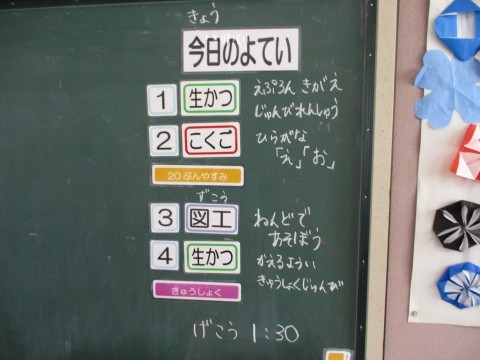 きょう
今日のよてい
1 生かつ えぷろん きがえ
じゅんびれんしゅう
2 こくご ひらがな
「え」「お」
20ぷんやすみ
ずこう
3 図工 ねんどで
あそぼう
4 生かつ かえるようい
きゅうしょくじゅんび
きゅうしょく
げこう 1:30